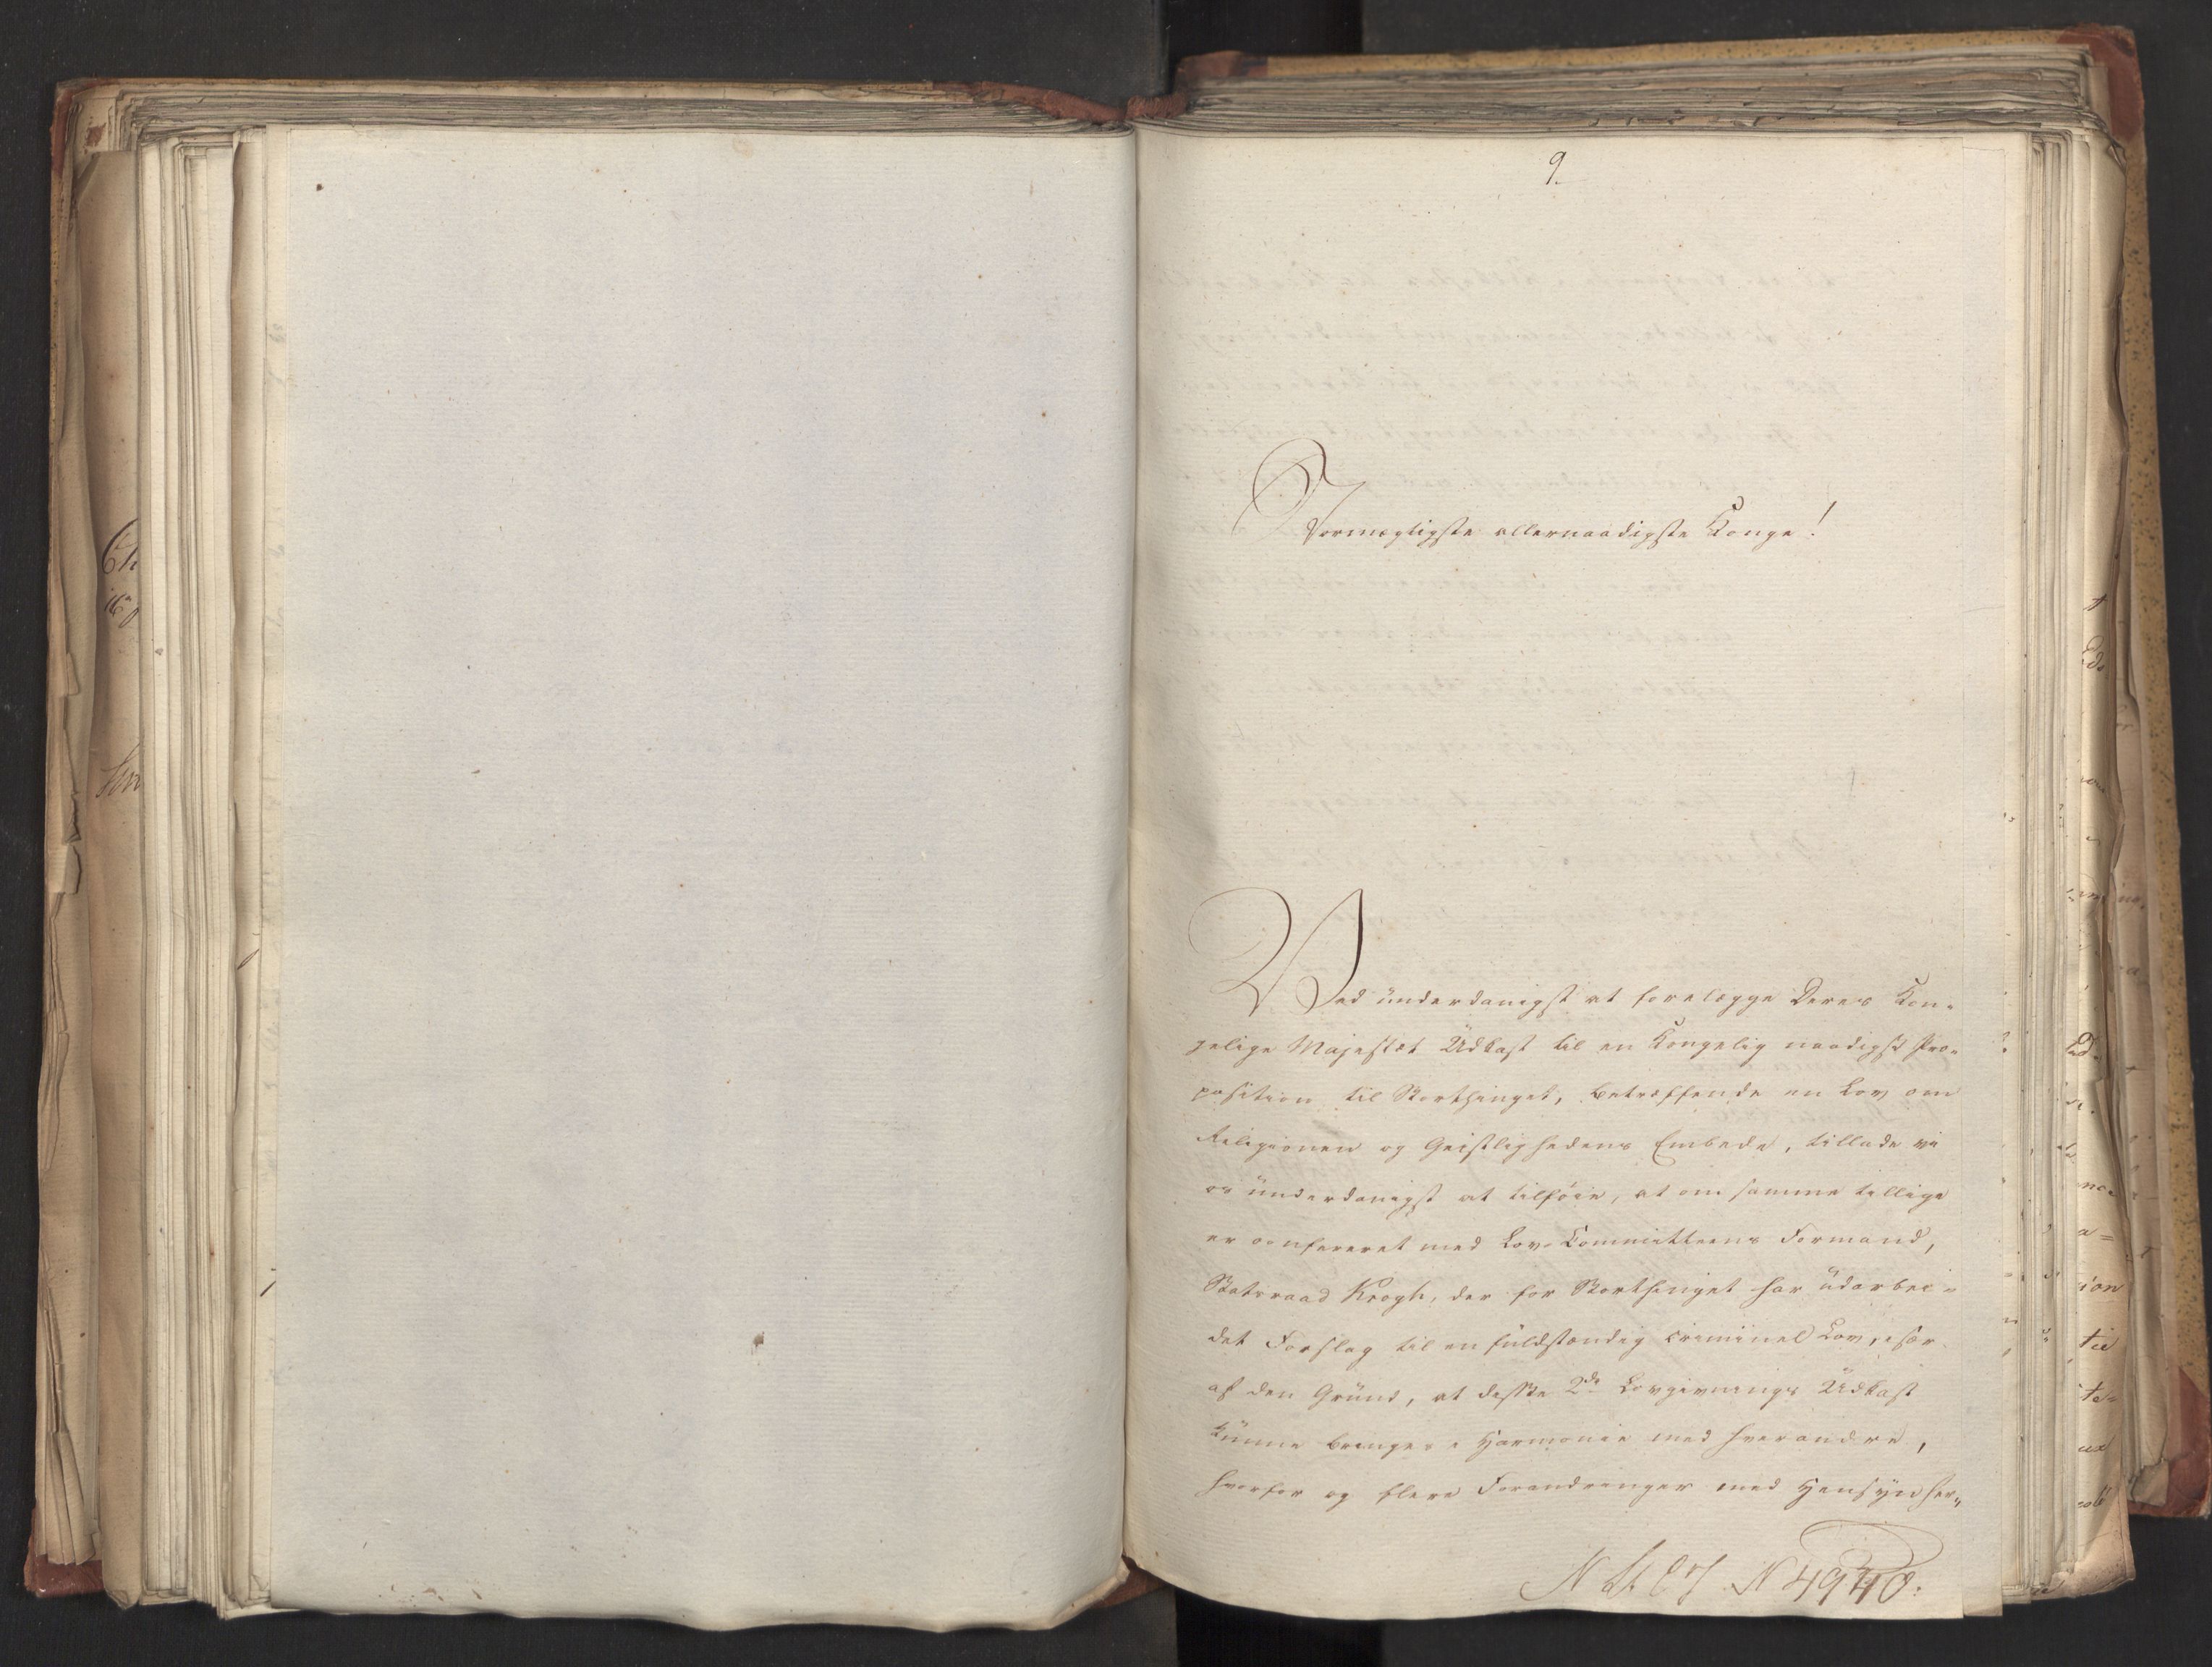 9.
Stormægtigste allernaadigste Konge!
Ved ünderdanigst at forelægge Deres Kon-
gelige Majestæt Üdkast til en Kongelig naadigst Pro-
position til Storthinget, betræffende en Lov om
Religionen og Geistlighedens Embede, tillade vi
os ünderdanigst at tilføie, at om samme tillige
er confereret med Lov-Committeens Formand,
Statsraad Krogh, der for Storthinget har üdarbei-
det Forslag til en füldstændig criminel Lov, især
af den Gründ, at disse 2de Lovgivnings Üdkast
künne bringes i Harmonie med hverandre,
hvorfor og flere Forandringer med Hensyn her-
N 4940: